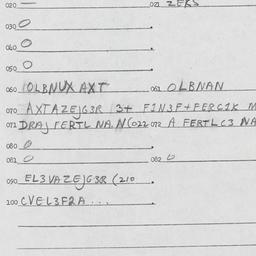 020 — 021 ZEKS
030 O
040 O
050 O
060 IOLBNUX AXT 061 OLBNAN
070 AXTAZEJG3R 3+ F1N3F+FERC1X M
071 DRAJ FERTL NA.N(022 072 A FERTLC3 NA
080 O
081 O 082 O
090 EL3VAZEJG3R (210
100 CVEL3F2A...